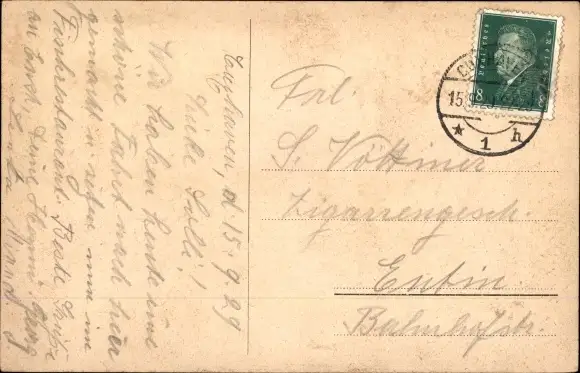 Cuxhaven, d. 15.9.29
Liebe Lilli!
Wir haben heute eine
schöne Fahrt nach hier
gemacht u. sitzen nun im
Fischrestaurant. Beste Grüße
an Euch, Deine
Frl.
S. Vöttiner
Zigarrengesch.
Eutin
Bahnhofstr.
Deutsches Reich
8
CUXHAVEN
15.9.29
* 1 h